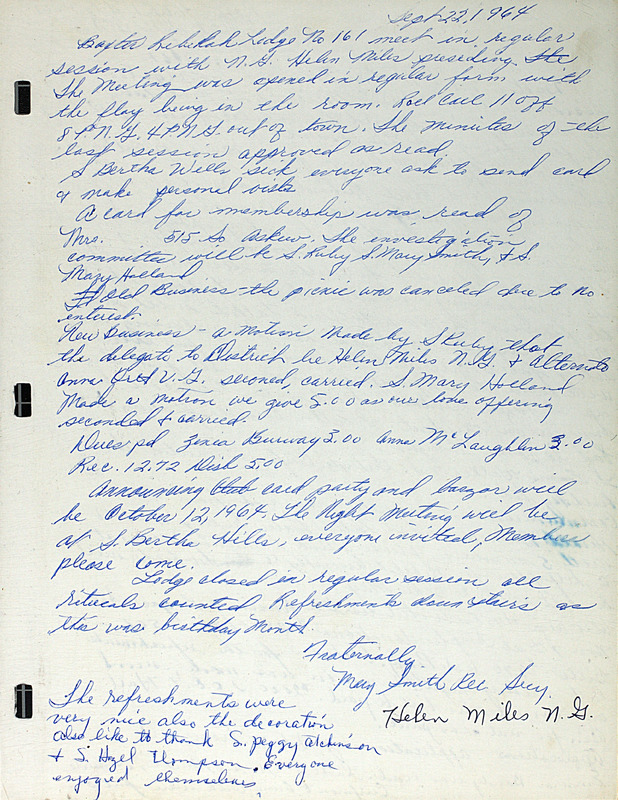 Sept 22, 1964
Baxter Rebekah Lodge No 161 meet in regular
session with N.G. Helen Miles presiding. The
The Meeting was opened in regular form with
the flag being in the room. Roll Call 11 off
8 P.N.G, 4 P.N.G. out of town. The minutes of the
last session approved as read.
S Bertha Wills sick, everyone ask to send card
& make personal visits
A card for membership was read of
Mrs. 515 So Askew. The investigation
committee will be S. Ruby S. Mary Smith, & S.
Mary Holland
Old Business - the picnic was canceled due to no
interest.
New Business - a motion made by S Ruby that
the delegate to District be Helen Miles N.G & alternate
Anna V.G. seconed, carried. S. Mary Holland
Made a motion we give 5.00 as our love offering
seconded & carried.
Dues pd 3.00 Anna McLaughlin 3.00
Rec. 12.72 Dish 5.00
Announcing card party and bazor will
be October 12, 1964. The Night Meeting will be
at S. Bertha Hills, everyone invited, Members
please come.
Lodge closed in regular session all
rituals counted Refreshments down stairs as
this was birthday Month.
Fraternally
Mary Smith Rec Secy.
Helen Miles N.G.
The refreshments were
very nice also the decoration
also like to thank S. Peggy Atchinson
& S. Hazel Thompson. Everyone
enjoyed themselves.